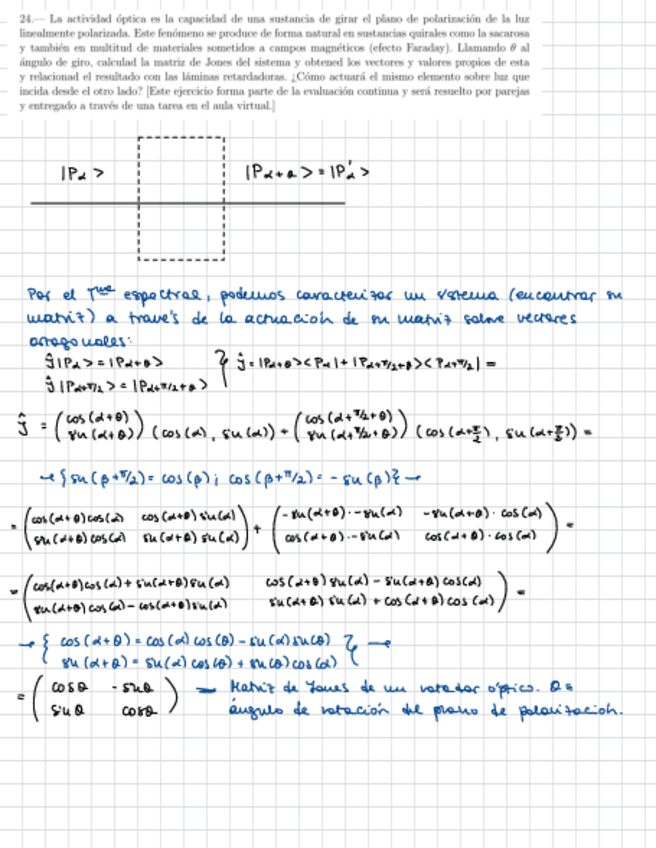 24.— La actividad óptica es la capacidad de una sustancia de girar el plano de polarización de la luz
linealmente polarizada. Este fenómeno se produce de forma natural en sustancias quirales como la sacarosa
y también en multitud de materiales sometidos a campos magnéticos (efecto Faraday). Llamando θ al
ángulo de giro, calculad la matriz de Jones del sistema y obtened los vectores y valores propios de esta
y relacionad el resultado con las láminas retardadoras. ¿Cómo actuará el mismo elemento sobre luz que
incida desde el otro lado? [Este ejercicio forma parte de la evaluación continua y será resuelto por parejas
y entregado a través de una tarea en el aula virtual.]
|Pα> |Pα+θ> = |P'α>
Por el Tma espectral, podemos caracterizar un sistema (encontrar su
matriz) a través de la actuación de su matriz sobre vectores
ortogonales:
Ĵ|Pα> = |Pα+θ>
Ĵ|Pα+π/2> = |Pα+π/2+θ> } Ĵ = |Pα+θ><Pα| + |Pα+π/2+θ><Pα+π/2| =
Ĵ = (cos(α+θ) sin(α+θ)) (cos(α), sin(α)) + (cos(α+π/2+θ) sin(α+π/2+θ)) (cos(α+π/2), sin(α+π/2)) =
→ {sin(β+π/2) = cos(β); cos(β+π/2) = -sin(β)} →
= (cos(α+θ)cos(α) cos(α+θ)sin(α) sin(α+θ)cos(α) sin(α+θ)sin(α)) + (-sin(α+θ)·-sin(α) -sin(α+θ)·cos(α) cos(α+θ)·-sin(α) cos(α+θ)·cos(α)) =
= (cos(α+θ)cos(α) + sin(α+θ)sin(α) cos(α+θ)sin(α) - sin(α+θ)cos(α)
sin(α+θ)cos(α) - cos(α+θ)sin(α) sin(α+θ)sin(α) + cos(α+θ)cos(α)) =
→ { cos(α+θ) = cos(α)cos(θ) - sin(α)sin(θ)
sin(α+θ) = sin(α)cos(θ) + sin(θ)cos(α) } →
= (cosθ -sinθ — Matriz de Jones de un rotador óptico. θ ≡
sinθ cosθ) ángulo de rotación del plano de polarización.